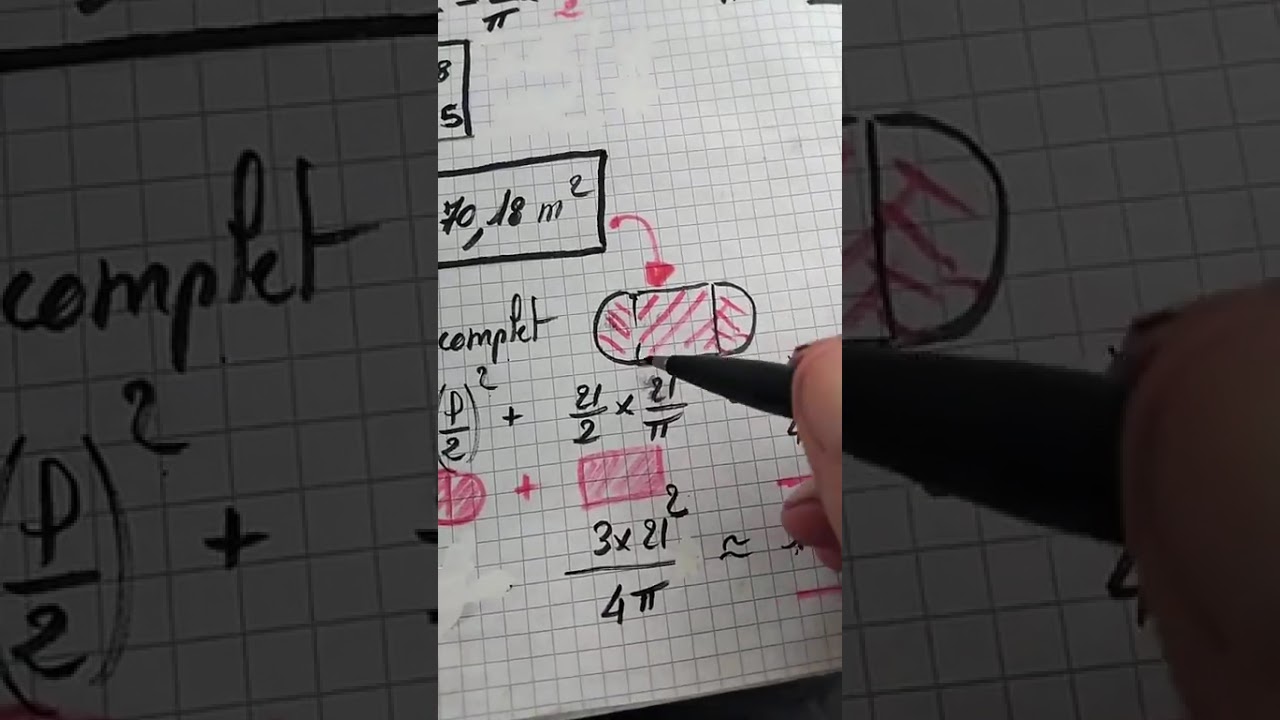 π 2
8
5
70,18 m²
complet
(l/2)² + 21/2 × 21/π
+
3×21²/4π ≈